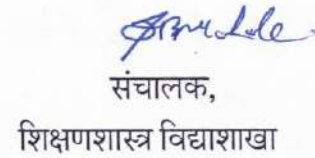 संचालक,
शिक्षणशास्त्र विद्याशाखा